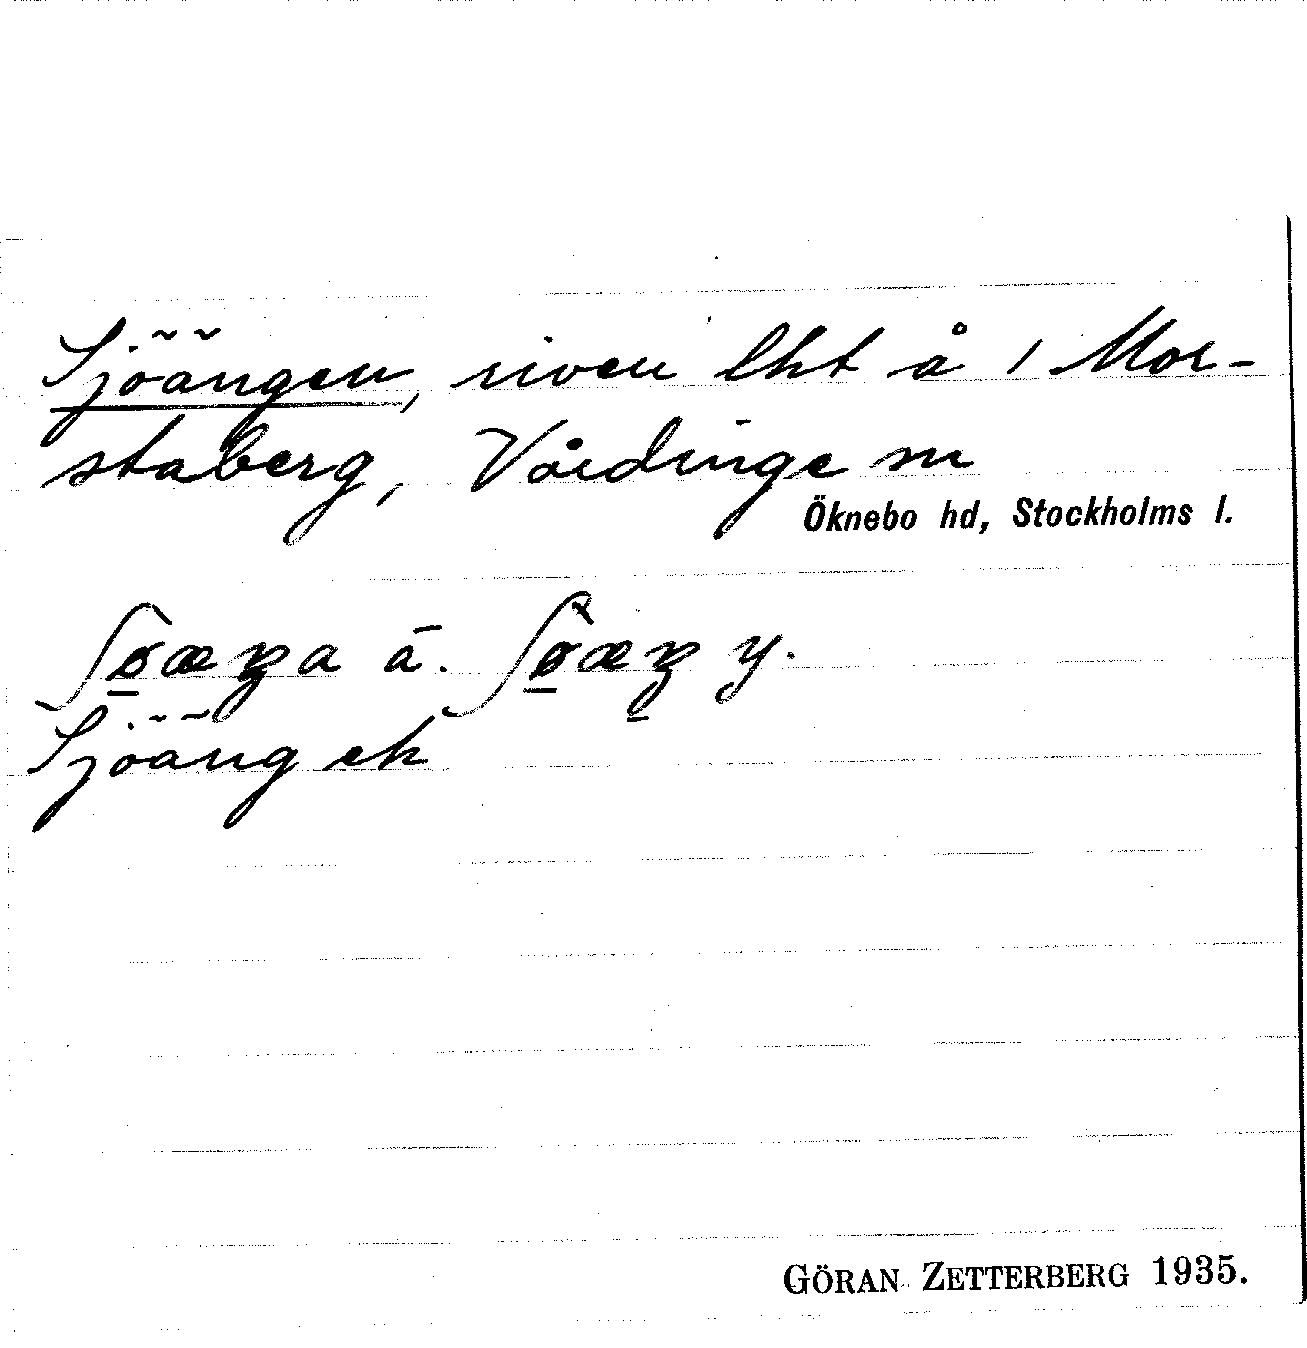 Sjöängen, riven lht å 1 Mor-
staberg, Vårdinge sn
Öknebo hd, Stockholms l.
ä. y.
Sjöäng ek
GÖRAN ZETTERBERG 1935.